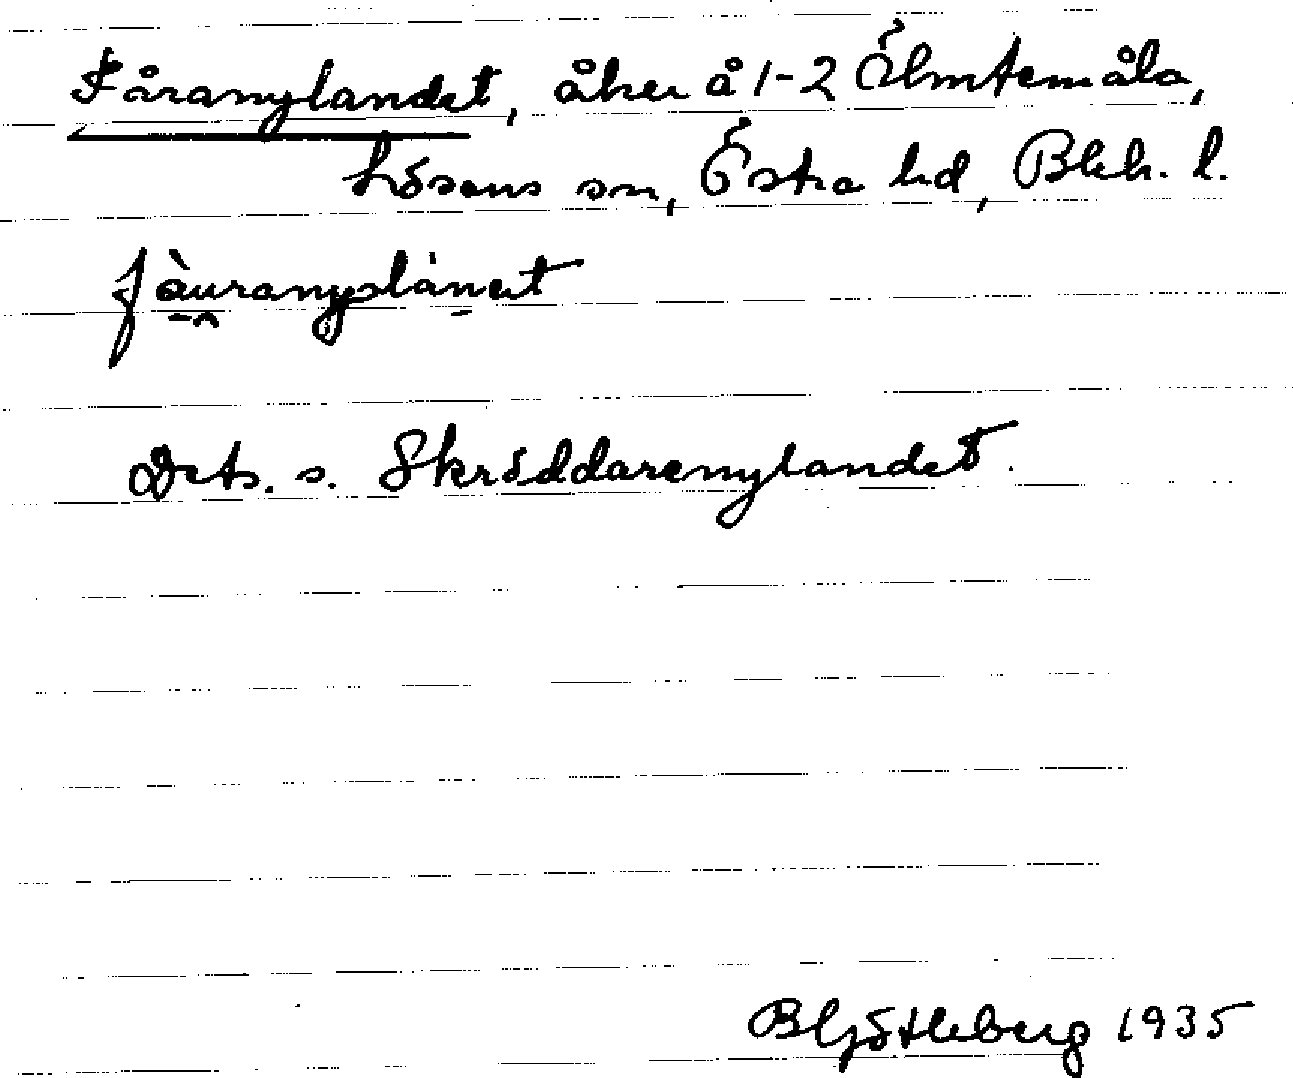 Fåranylandet, åker å 1-2 Ölmtemåla,
Lösens sn, Östra hd, Blek. l.
fàuranyslánɐt
Dets. s. Skröddarenylandet.
B Hjötleberg 1935